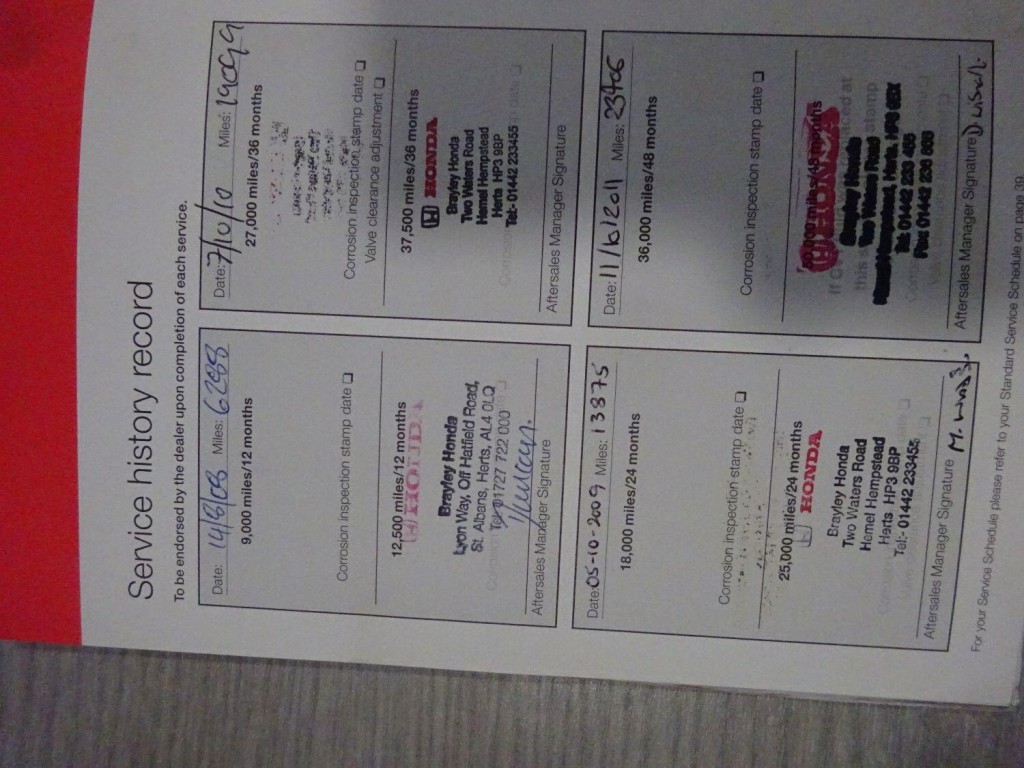 Service history record
To be endorsed by the dealer upon completion of each service.
Date: 14/8/08 Miles: 6288
9,000 miles/12 months
Corrosion inspection stamp date
12,500 miles/12 months
HONDA
Brayley Honda
Lyon Way, Off Hatfield Road,
St. Albans, Herts, AL4 0LQ
Tel: 01727 722 000
Aftersales Manager Signature
Date: 7/10/10 Miles:
27,000 miles/36 months
Corrosion inspection stamp date
Valve clearance adjustment
37,500 miles/36 months
HONDA
Brayley Honda
Two Waters Road
Hemel Hempstead
Herts HP3 9BP
Tel:- 01442 233455
Aftersales Manager Signature
Date: 05-10-2009 Miles: 13875
18,000 miles/24 months
Corrosion inspection stamp date
25,000 miles/24 months
HONDA
Brayley Honda
Two Waters Road
Hemel Hempstead
Herts HP3 9BP
Tel:- 01442 233455
Aftersales Manager Signature
Date: 11/6/2011 Miles:
36,000 miles/48 months
Corrosion inspection stamp date
miles/48 months
HONDA
Brayley Honda
Two Waters Road
Hemel Hempstead, Herts.
Tel: 01442 233 455
Fax: 01442
Aftersales Manager Signature
For your Service Schedule please refer to your Standard Service Schedule on page 39.